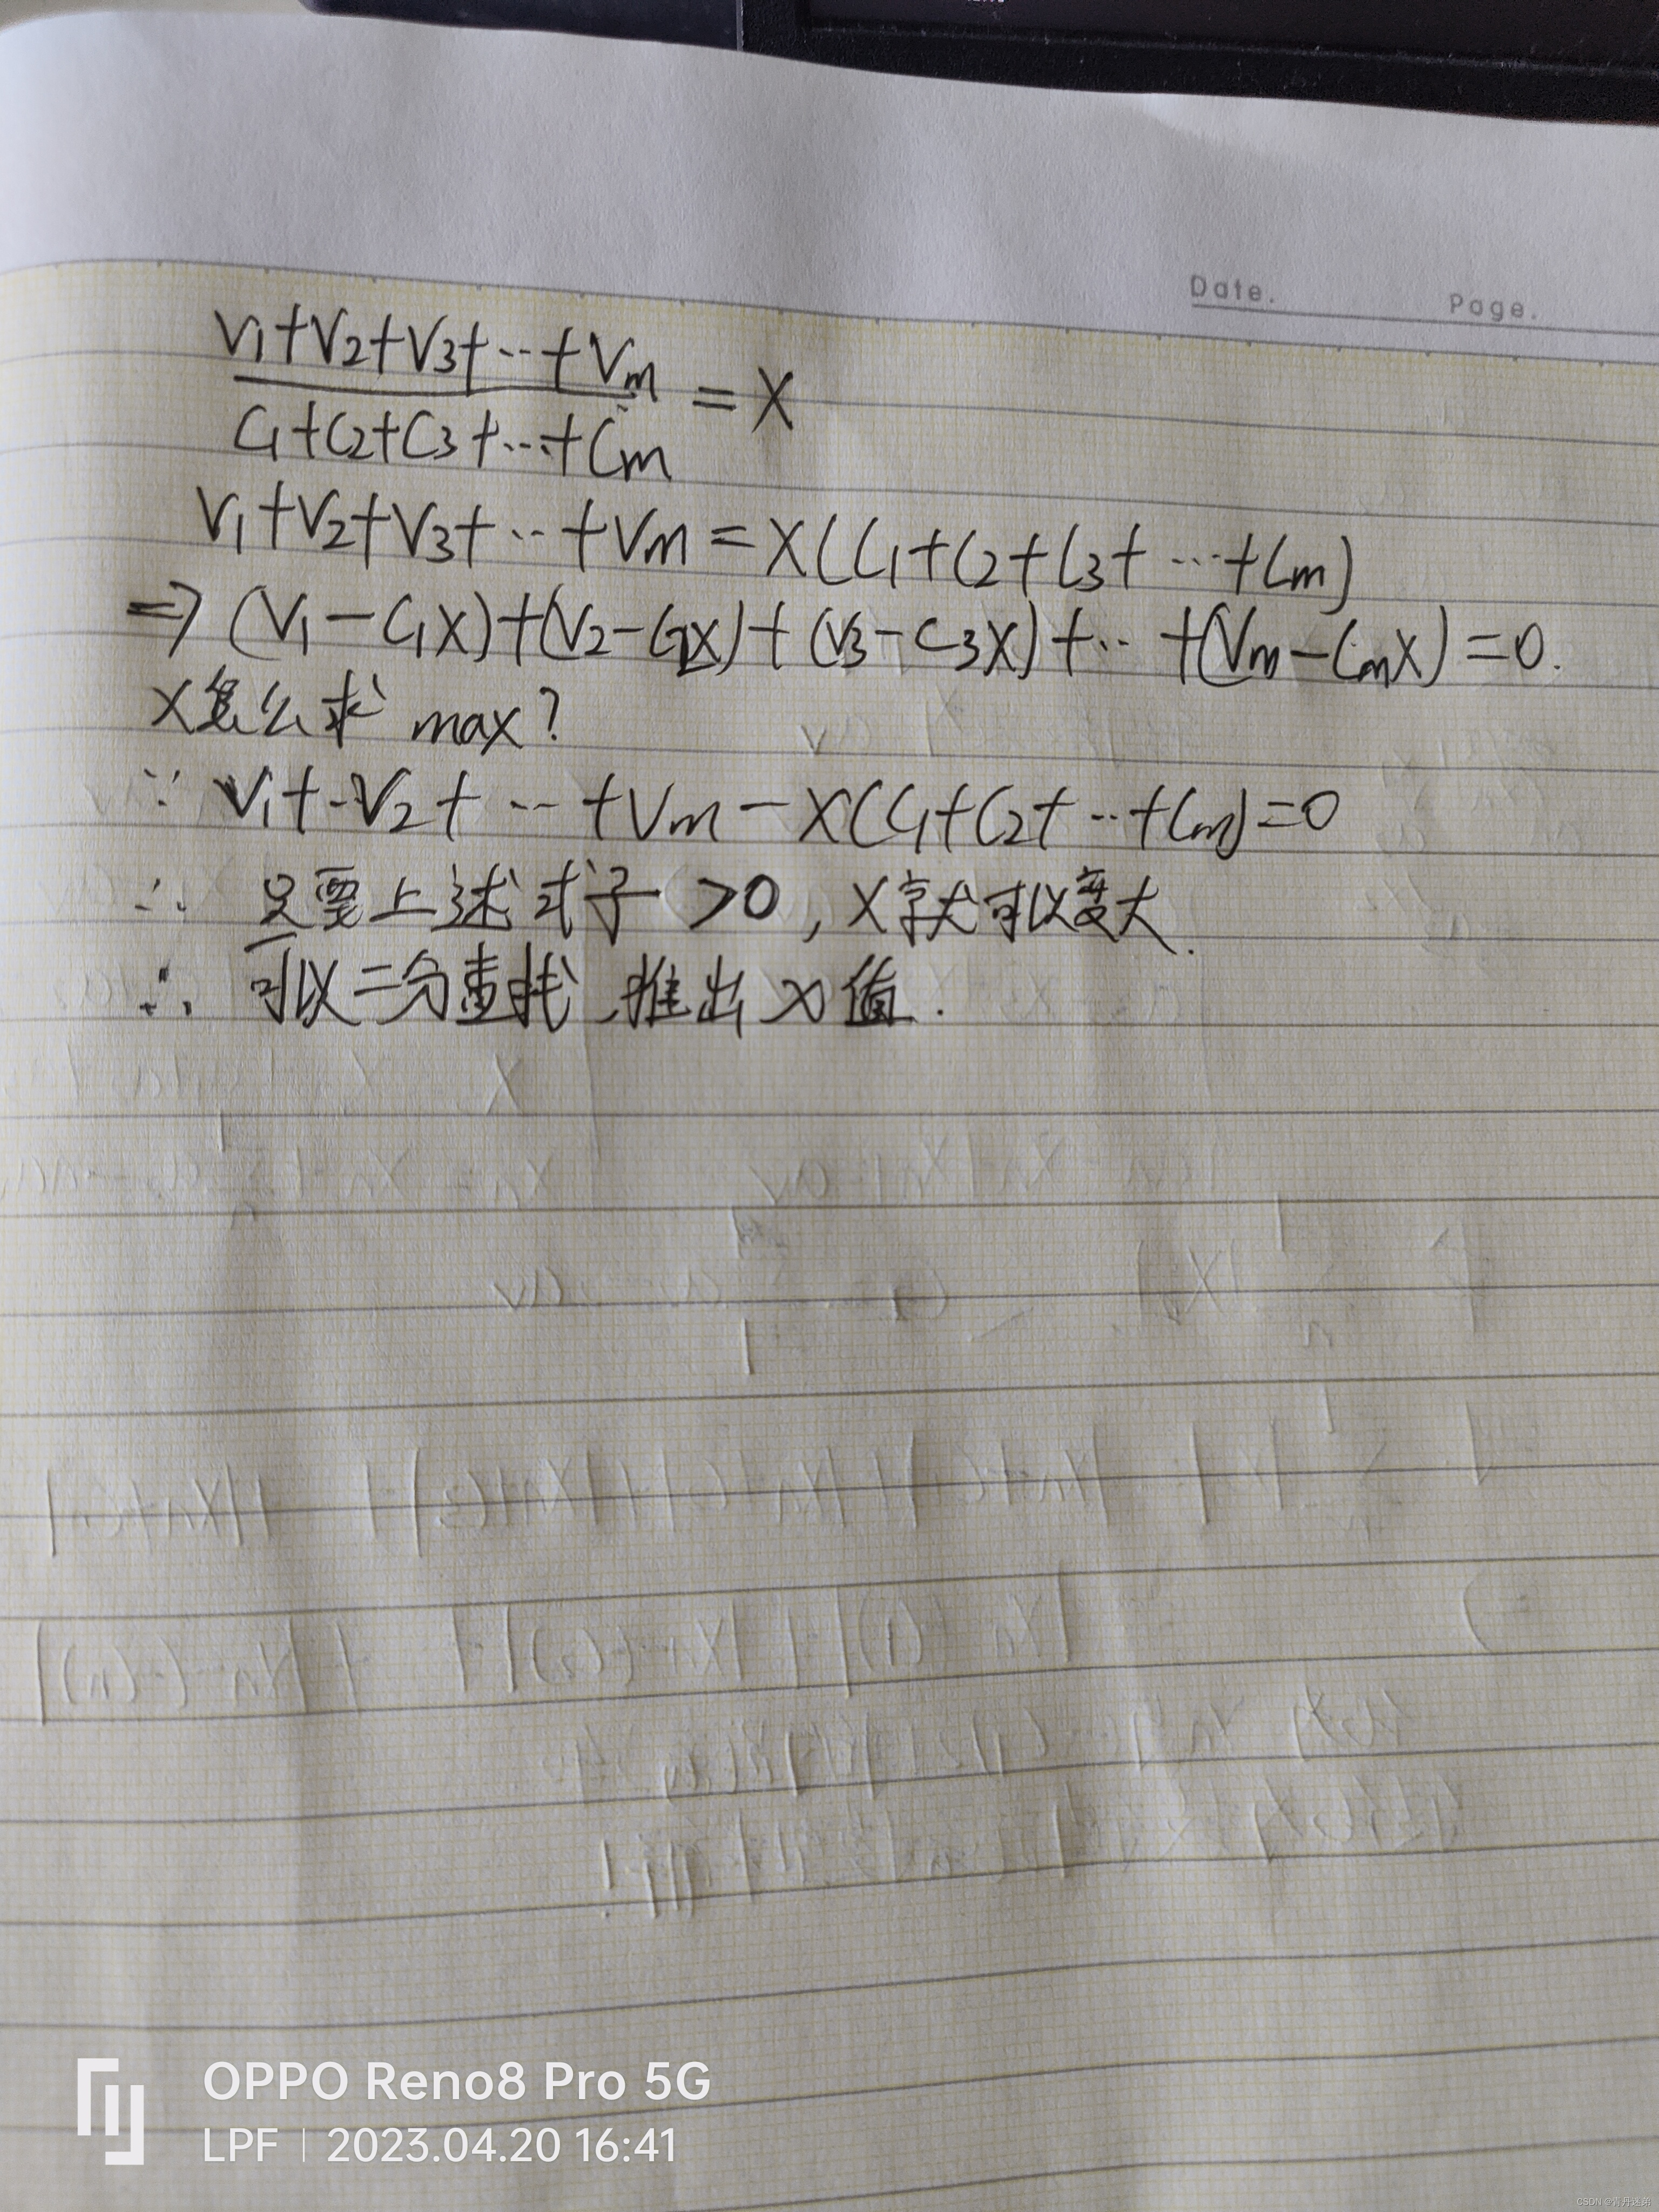 Date. Page.
V1+V2+V3+…+Vm
C1+C2+C3+…+Cm
=X
V1+V2+V3+…+Vm=X(C1+C2+C3+…+Cm)
⇒ (V1-C1X)+(V2-C2X)+(V3-C3X)+…+(Vm-CmX)=0.
X怎么求 max?
∵ V1+V2+…+Vm-X(C1+C2+…+Cm)=0
∴ 只要上述式子>0,X就可以变大.
∴ 可以二分查找,推出X值.
OPPO Reno8 Pro 5G
LPF | 2023.04.20 16:41